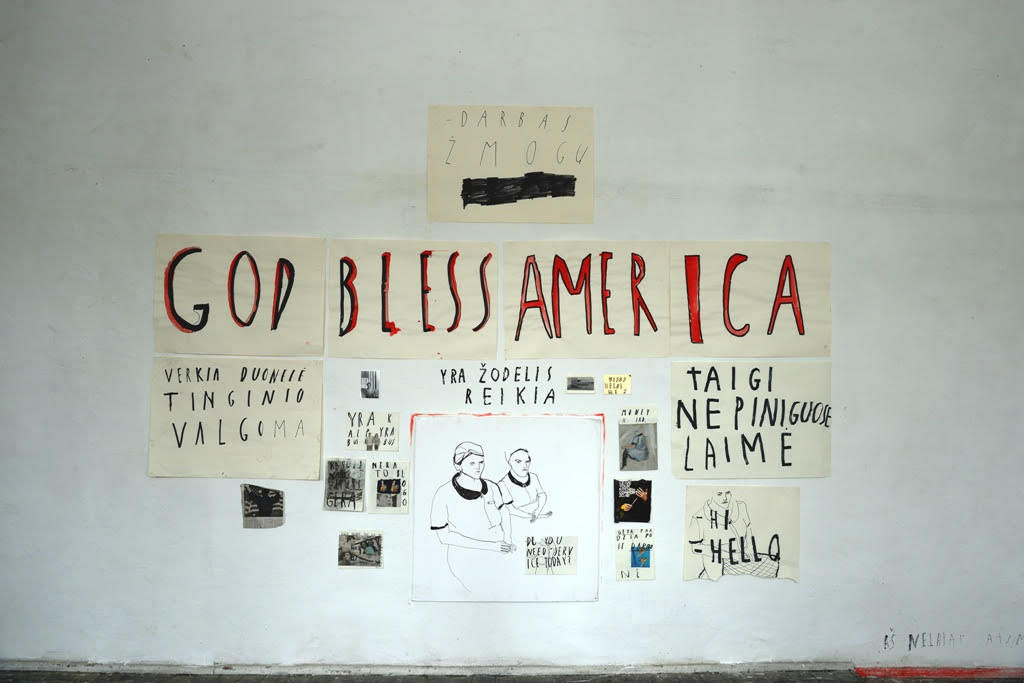 - DARBAS
ŽMOGŲ
GOD BLESS AMERICA
VERKIA DUONELĖ
TINGINIO
VALGOMA
YRA ŽODELIS
REIKIA
TAIGI
NE PINIGUOSE
LAIMĖ
YRA K
GERA
NĖRA
TO BL
OGO
MONEY
DO YOU
NEED SERV
ICE TODAY?
- HI
- HELLO
NE